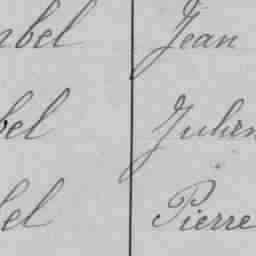 bel Jean
bel Julien
bel Pierre